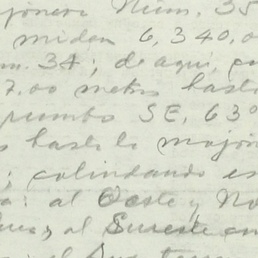 jonera Núm. 35
miden 6,340.0
m. 34; de aquí, co
7.00 metros hasta
rumbo SE, 63°
s hasta la mojon
; colindando es
a: al Oeste y No
y al Sureste con